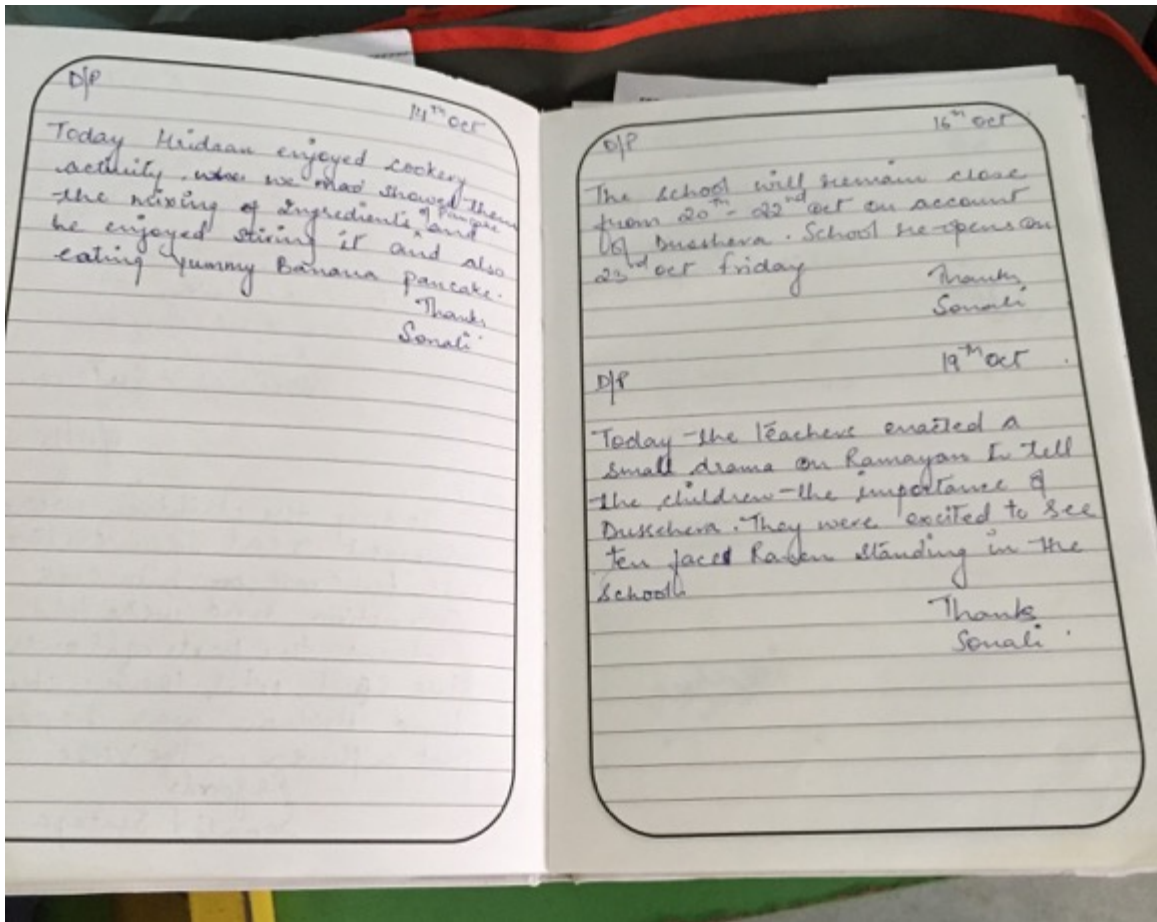 D/P
14th Oct
Today Hridaan enjoyed cookery
activity, we showed them
the mixing of Ingredients of pancake and
he enjoyed stiring it and also
eating yummy Banana pancake.
Thanks
Sonali
D/P
16th Oct
The School will remain close
from 20th - 22nd Oct on account
of Dusshera. School re-opens on
23rd Oct friday
Thanks
Sonali
19th Oct
D/P
Today the teachers enacted a
small drama on Ramayan to tell
the children the importance of
Dusschera. They were excited to see
ten faced Raven standing in the
School.
Thanks
Sonali